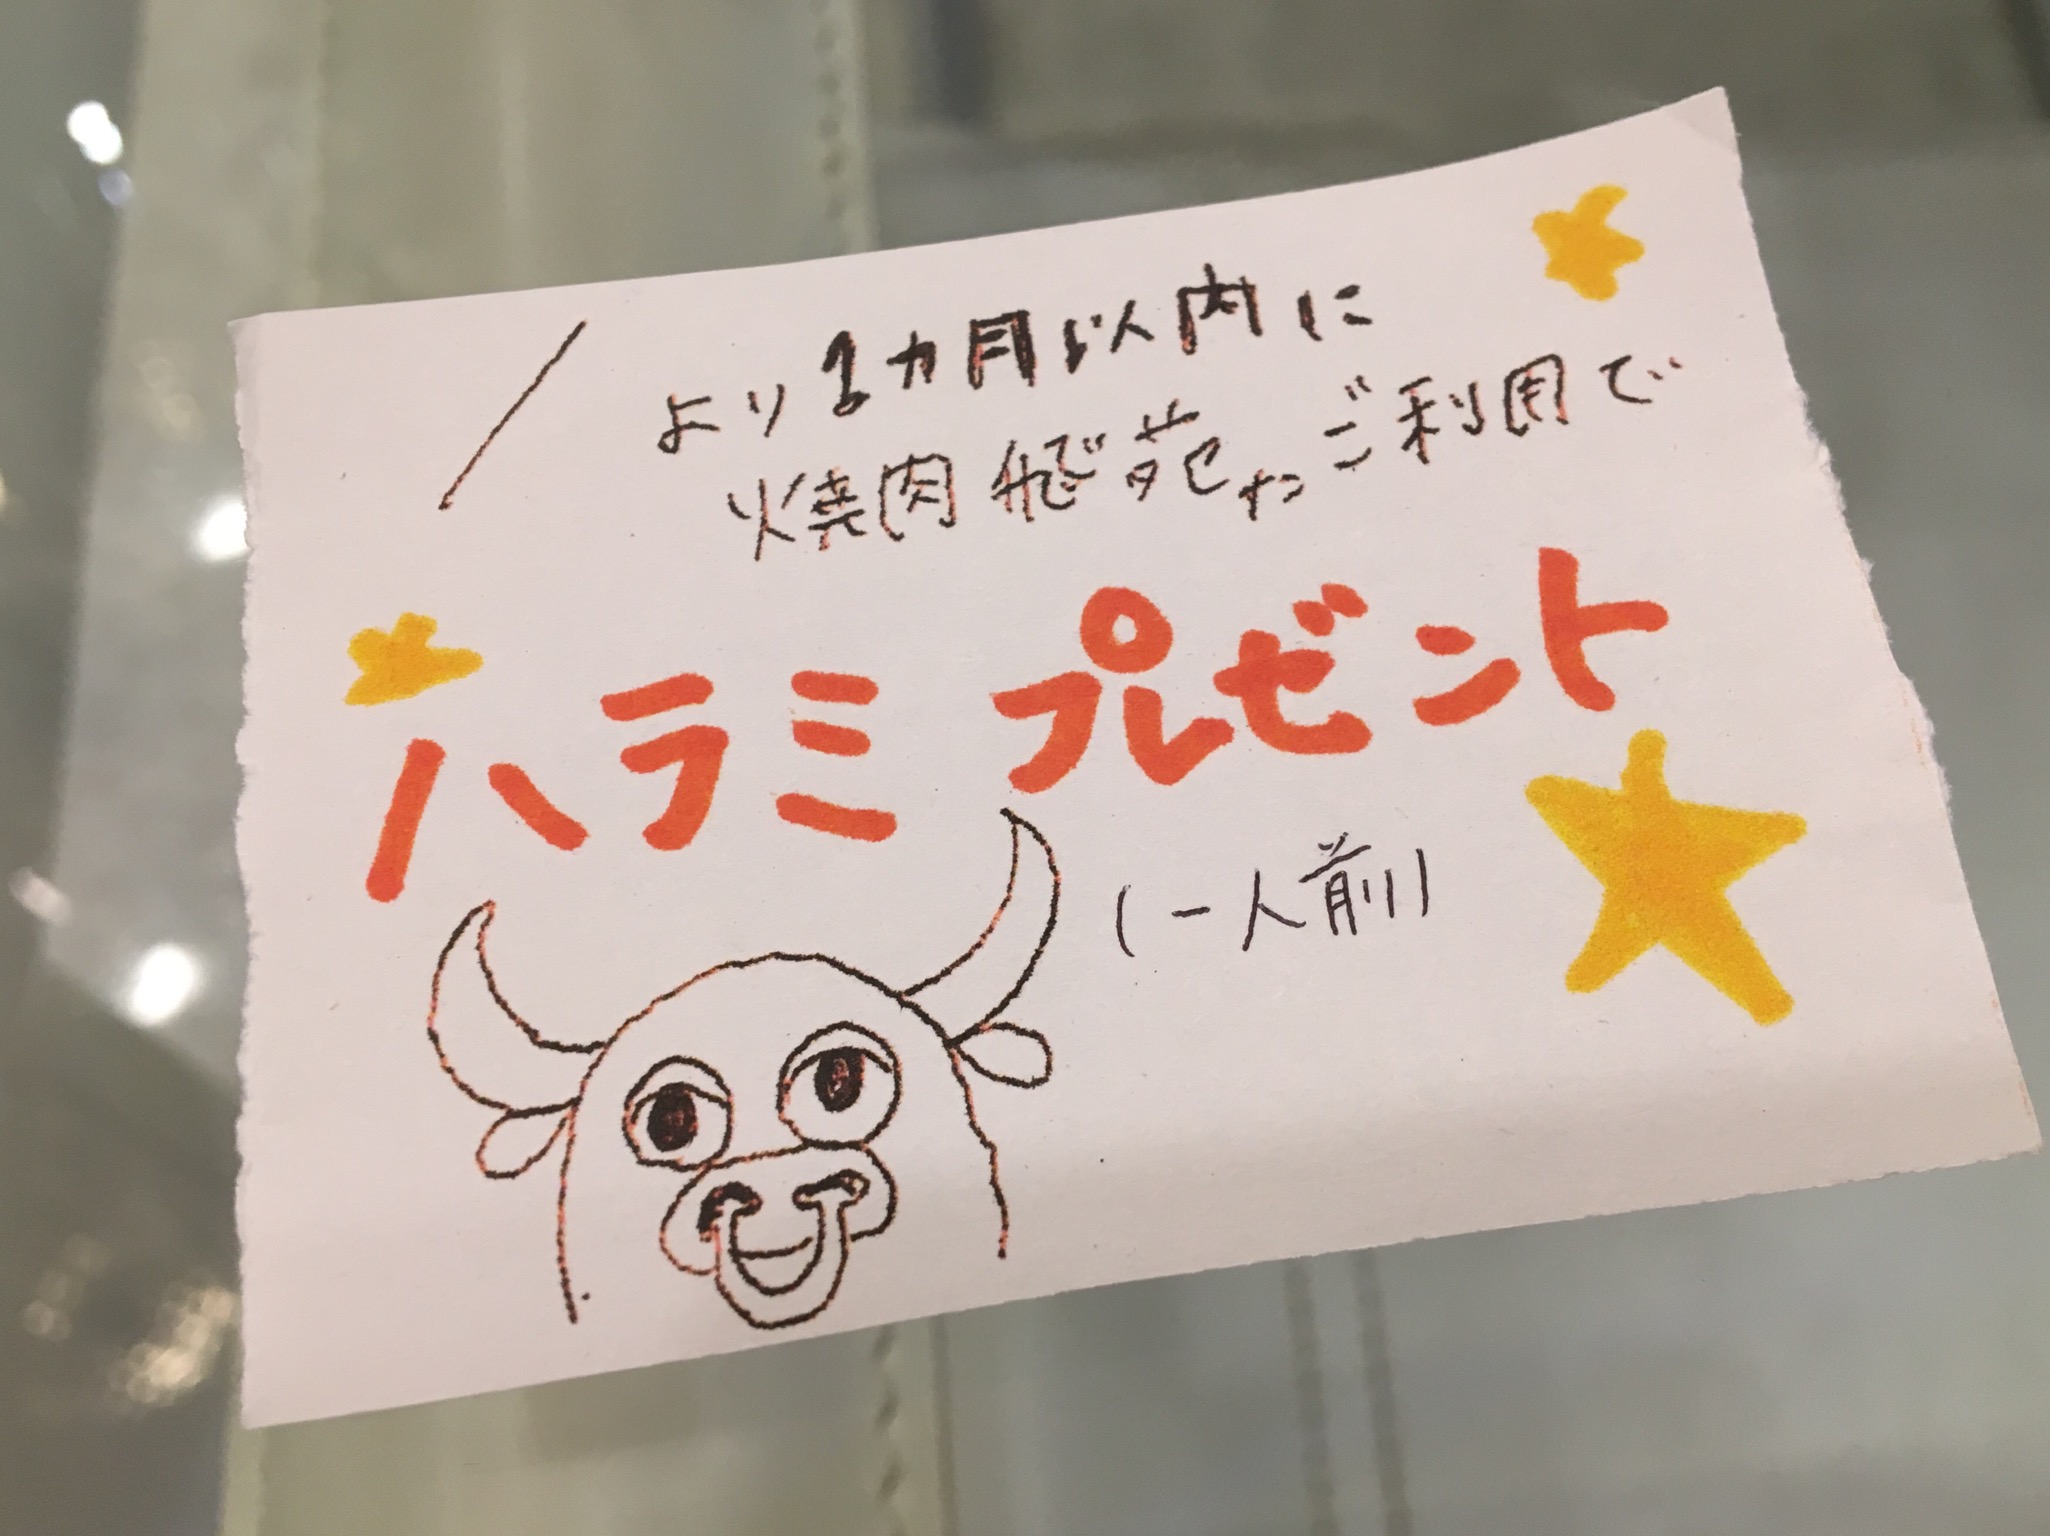 ／ より2ヵ月以内に
焼肉飛苑ご利用で
ハラミプレゼント
(一人前)